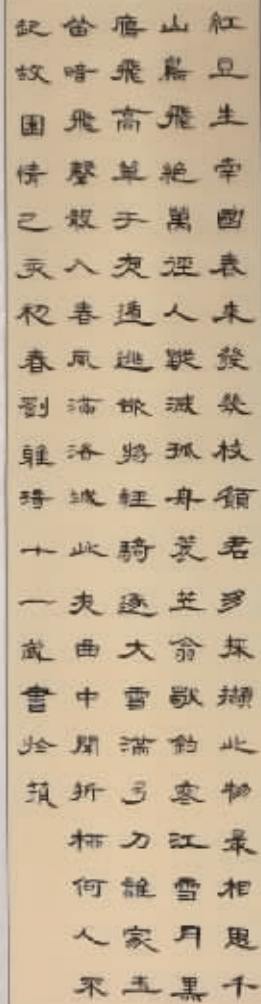 紅豆生南國春來發幾枝願君多採擷此物最相思千
山鳥飛絕萬徑人蹤滅孤舟蓑笠翁獨釣寒江雪月黑
雁飛高單于夜遁逃欲將輕騎逐大雪滿弓刀誰家玉
笛暗飛聲散入春風滿洛城此夜曲中聞折柳何人不
起故園情己亥初春劉雅琦十一歲書於